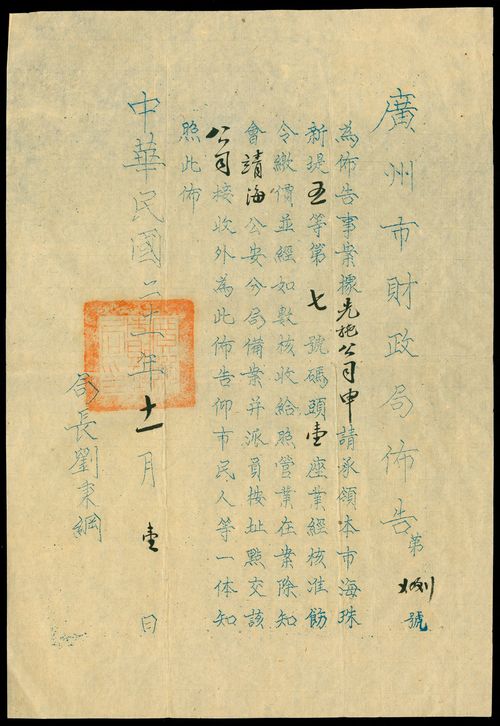 廣州市財政局佈告第 捌 號
為佈告事案據先施公司申請承領本市海珠
新堤五等第七號碼頭壹座業經核准飭
令繳價並經如數核收給照管業在案除知
會靖海公安分局備案并派員按址點交該
公司接收外為此佈告仰市民人等一体知
照此佈
中華民國二十一年十一月壹日
局長劉秉綱